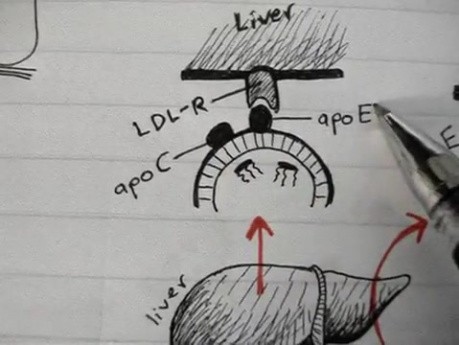 Liver
LDL-R
apoE
apoC
E
liver